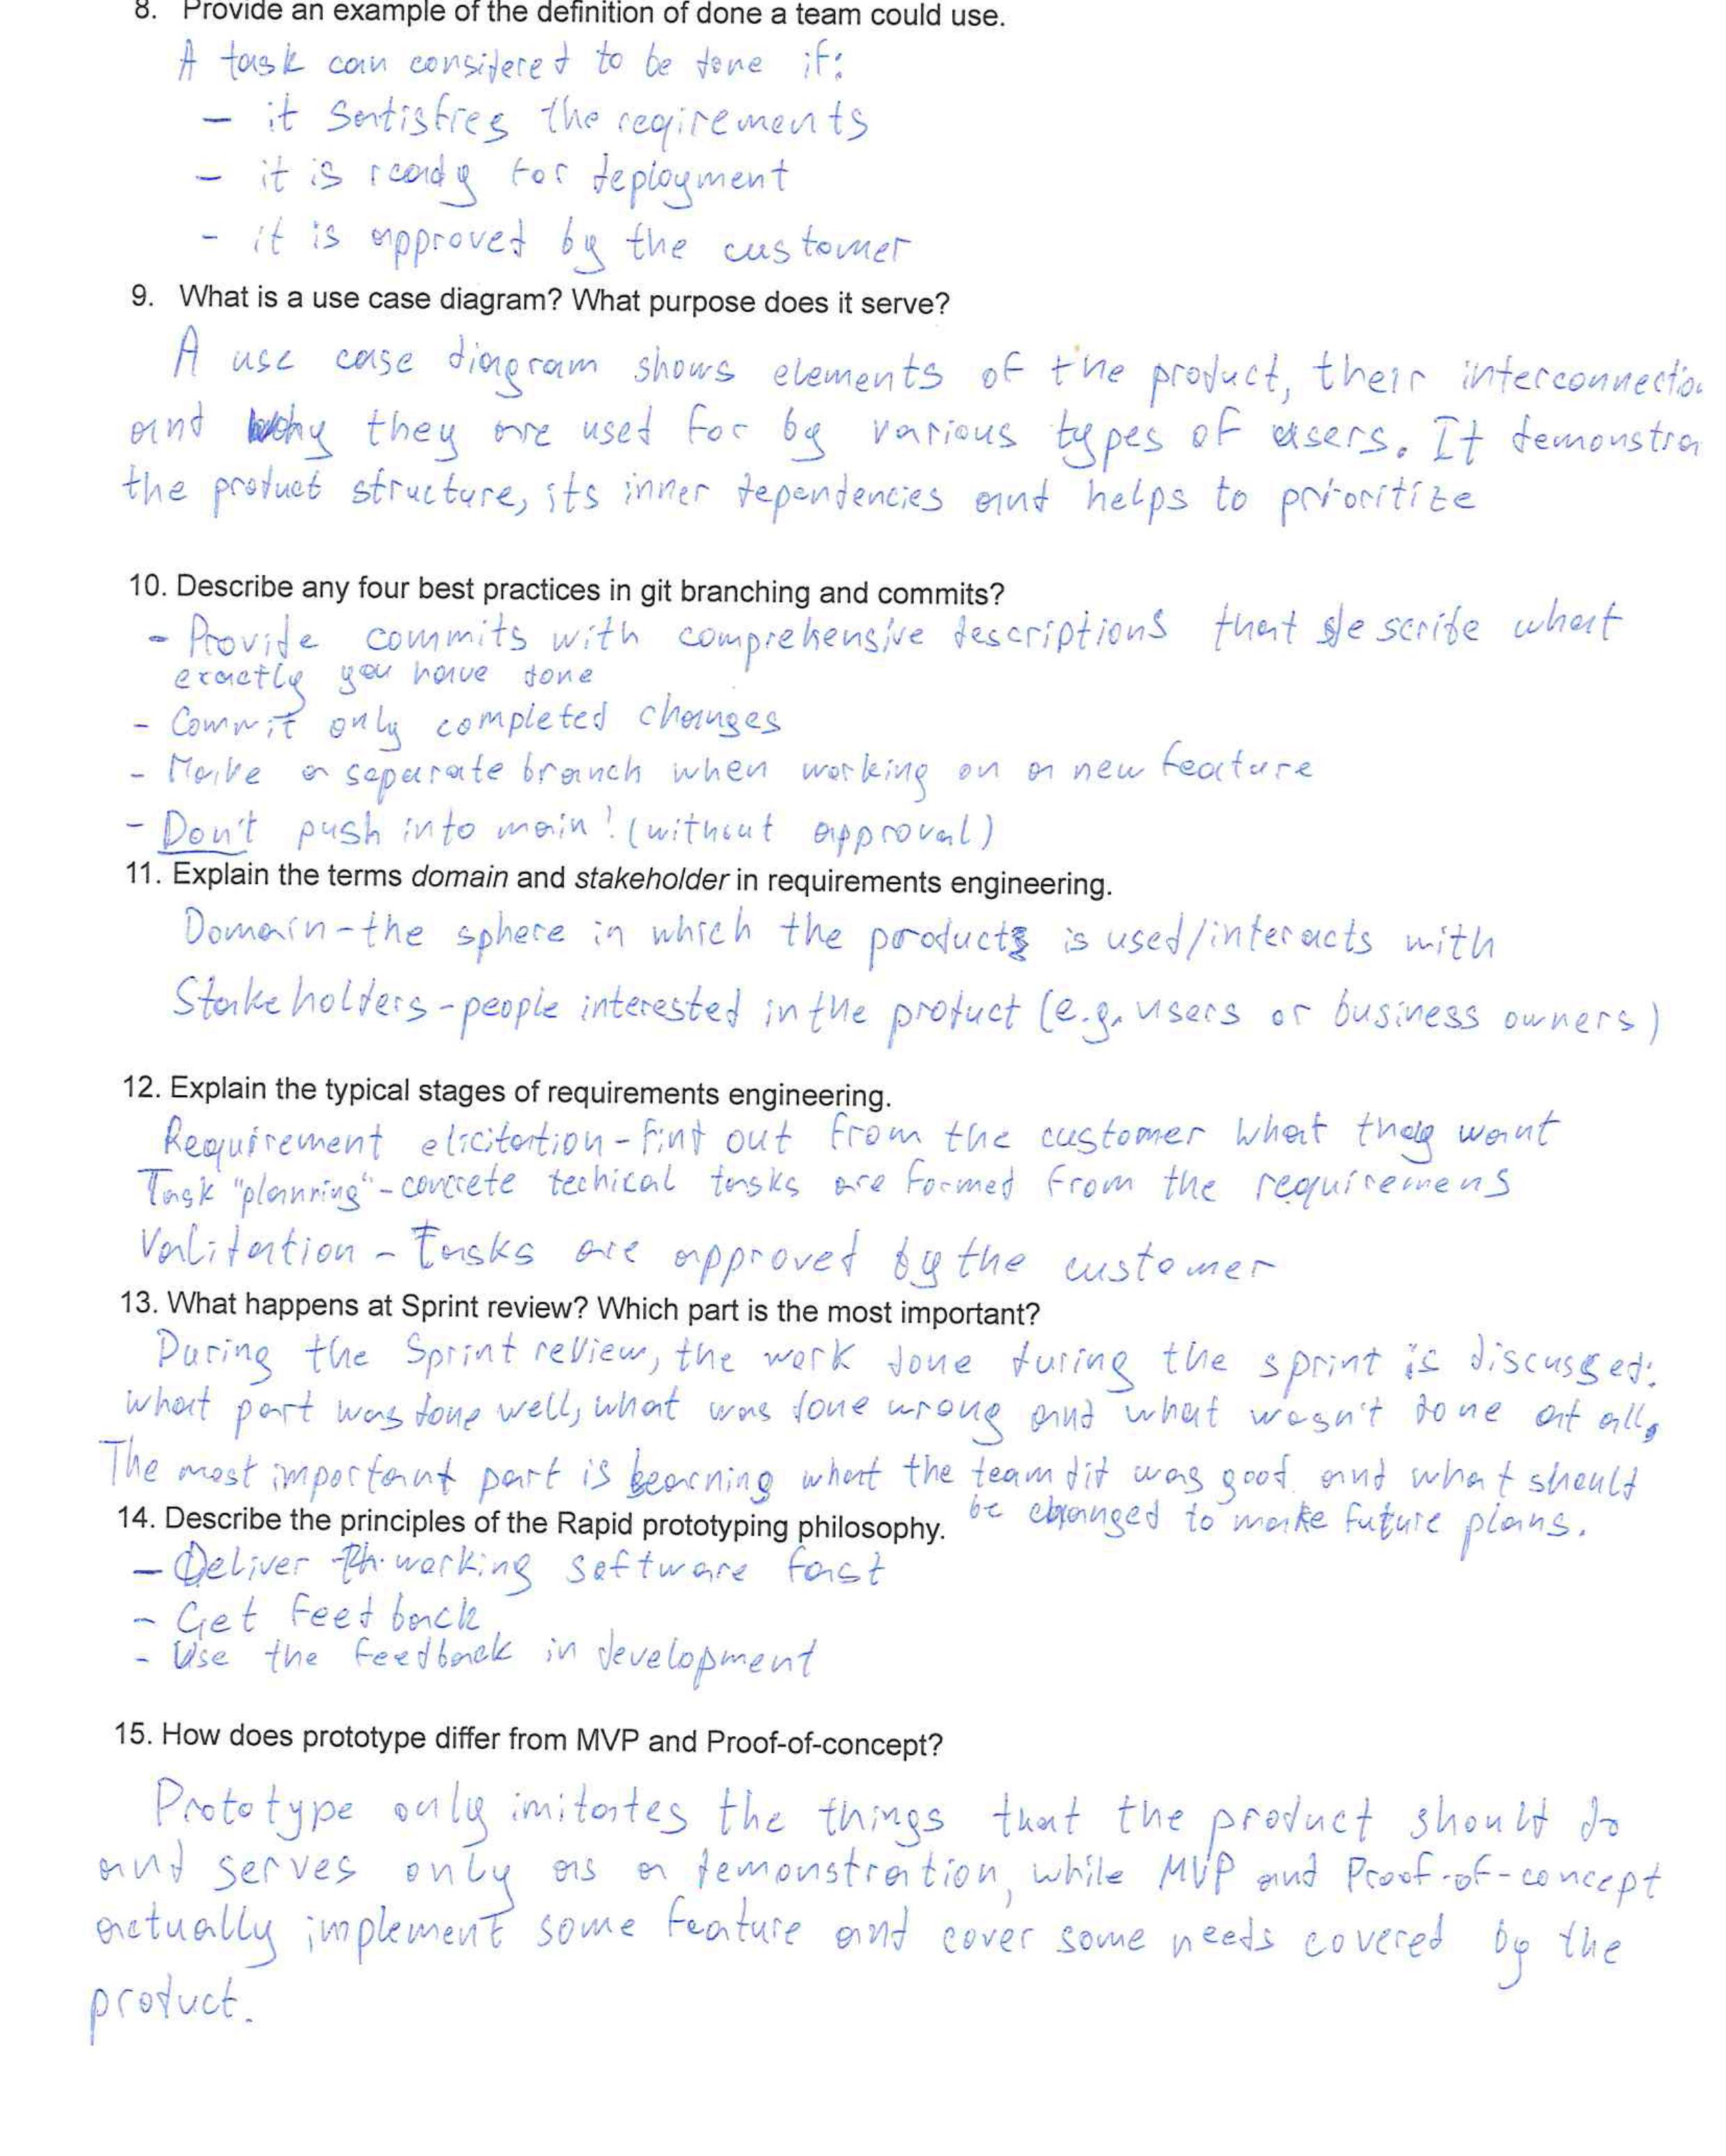 8. Provide an example of the definition of done a team could use.
A task can considered to be done if:
- it satisfies the reqirements
- it is ready for deployment
- it is approved by the customer
9. What is a use case diagram? What purpose does it serve?
A use case diagram shows elements of the product, their interconnectio
and why they are used for by various types of users. It demonstra
the product structure, its inner dependencies and helps to prioritize
10. Describe any four best practices in git branching and commits?
- Provide commits with comprehensive descriptions that describe what
exactly you have done
- Commit only completed changes
- Make a separate branch when working on a new feature
- Don't push into main! (without approval)
11. Explain the terms domain and stakeholder in requirements engineering.
Domain - the sphere in which the product is used/interacts with
Stakeholders - people interested in the product (e.g. users or business owners)
12. Explain the typical stages of requirements engineering.
Requirement elicitation - find out from the customer what they want
Task "planning" - concrete techical tasks are formed from the requiremens
Validation - tasks are approved by the customer
13. What happens at Sprint review? Which part is the most important?
During the Sprint review, the work done during the sprint is discussed:
what part was done well, what was done wrong and what wasn't done at all.
The most important part is learning what the team did was good and what should
be changed to make future plans.
14. Describe the principles of the Rapid prototyping philosophy.
- Deliver working software fast
- Get feedback
- Use the feedback in development
15. How does prototype differ from MVP and Proof-of-concept?
Prototype only imitates the things that the product should do
and serves only as a demonstration, while MVP and Proof-of-concept
actually implement some feature and cover some needs covered by the
product.